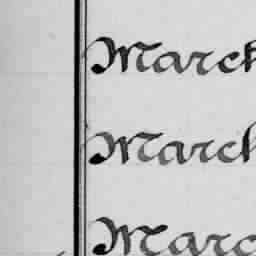 March
March
Marc